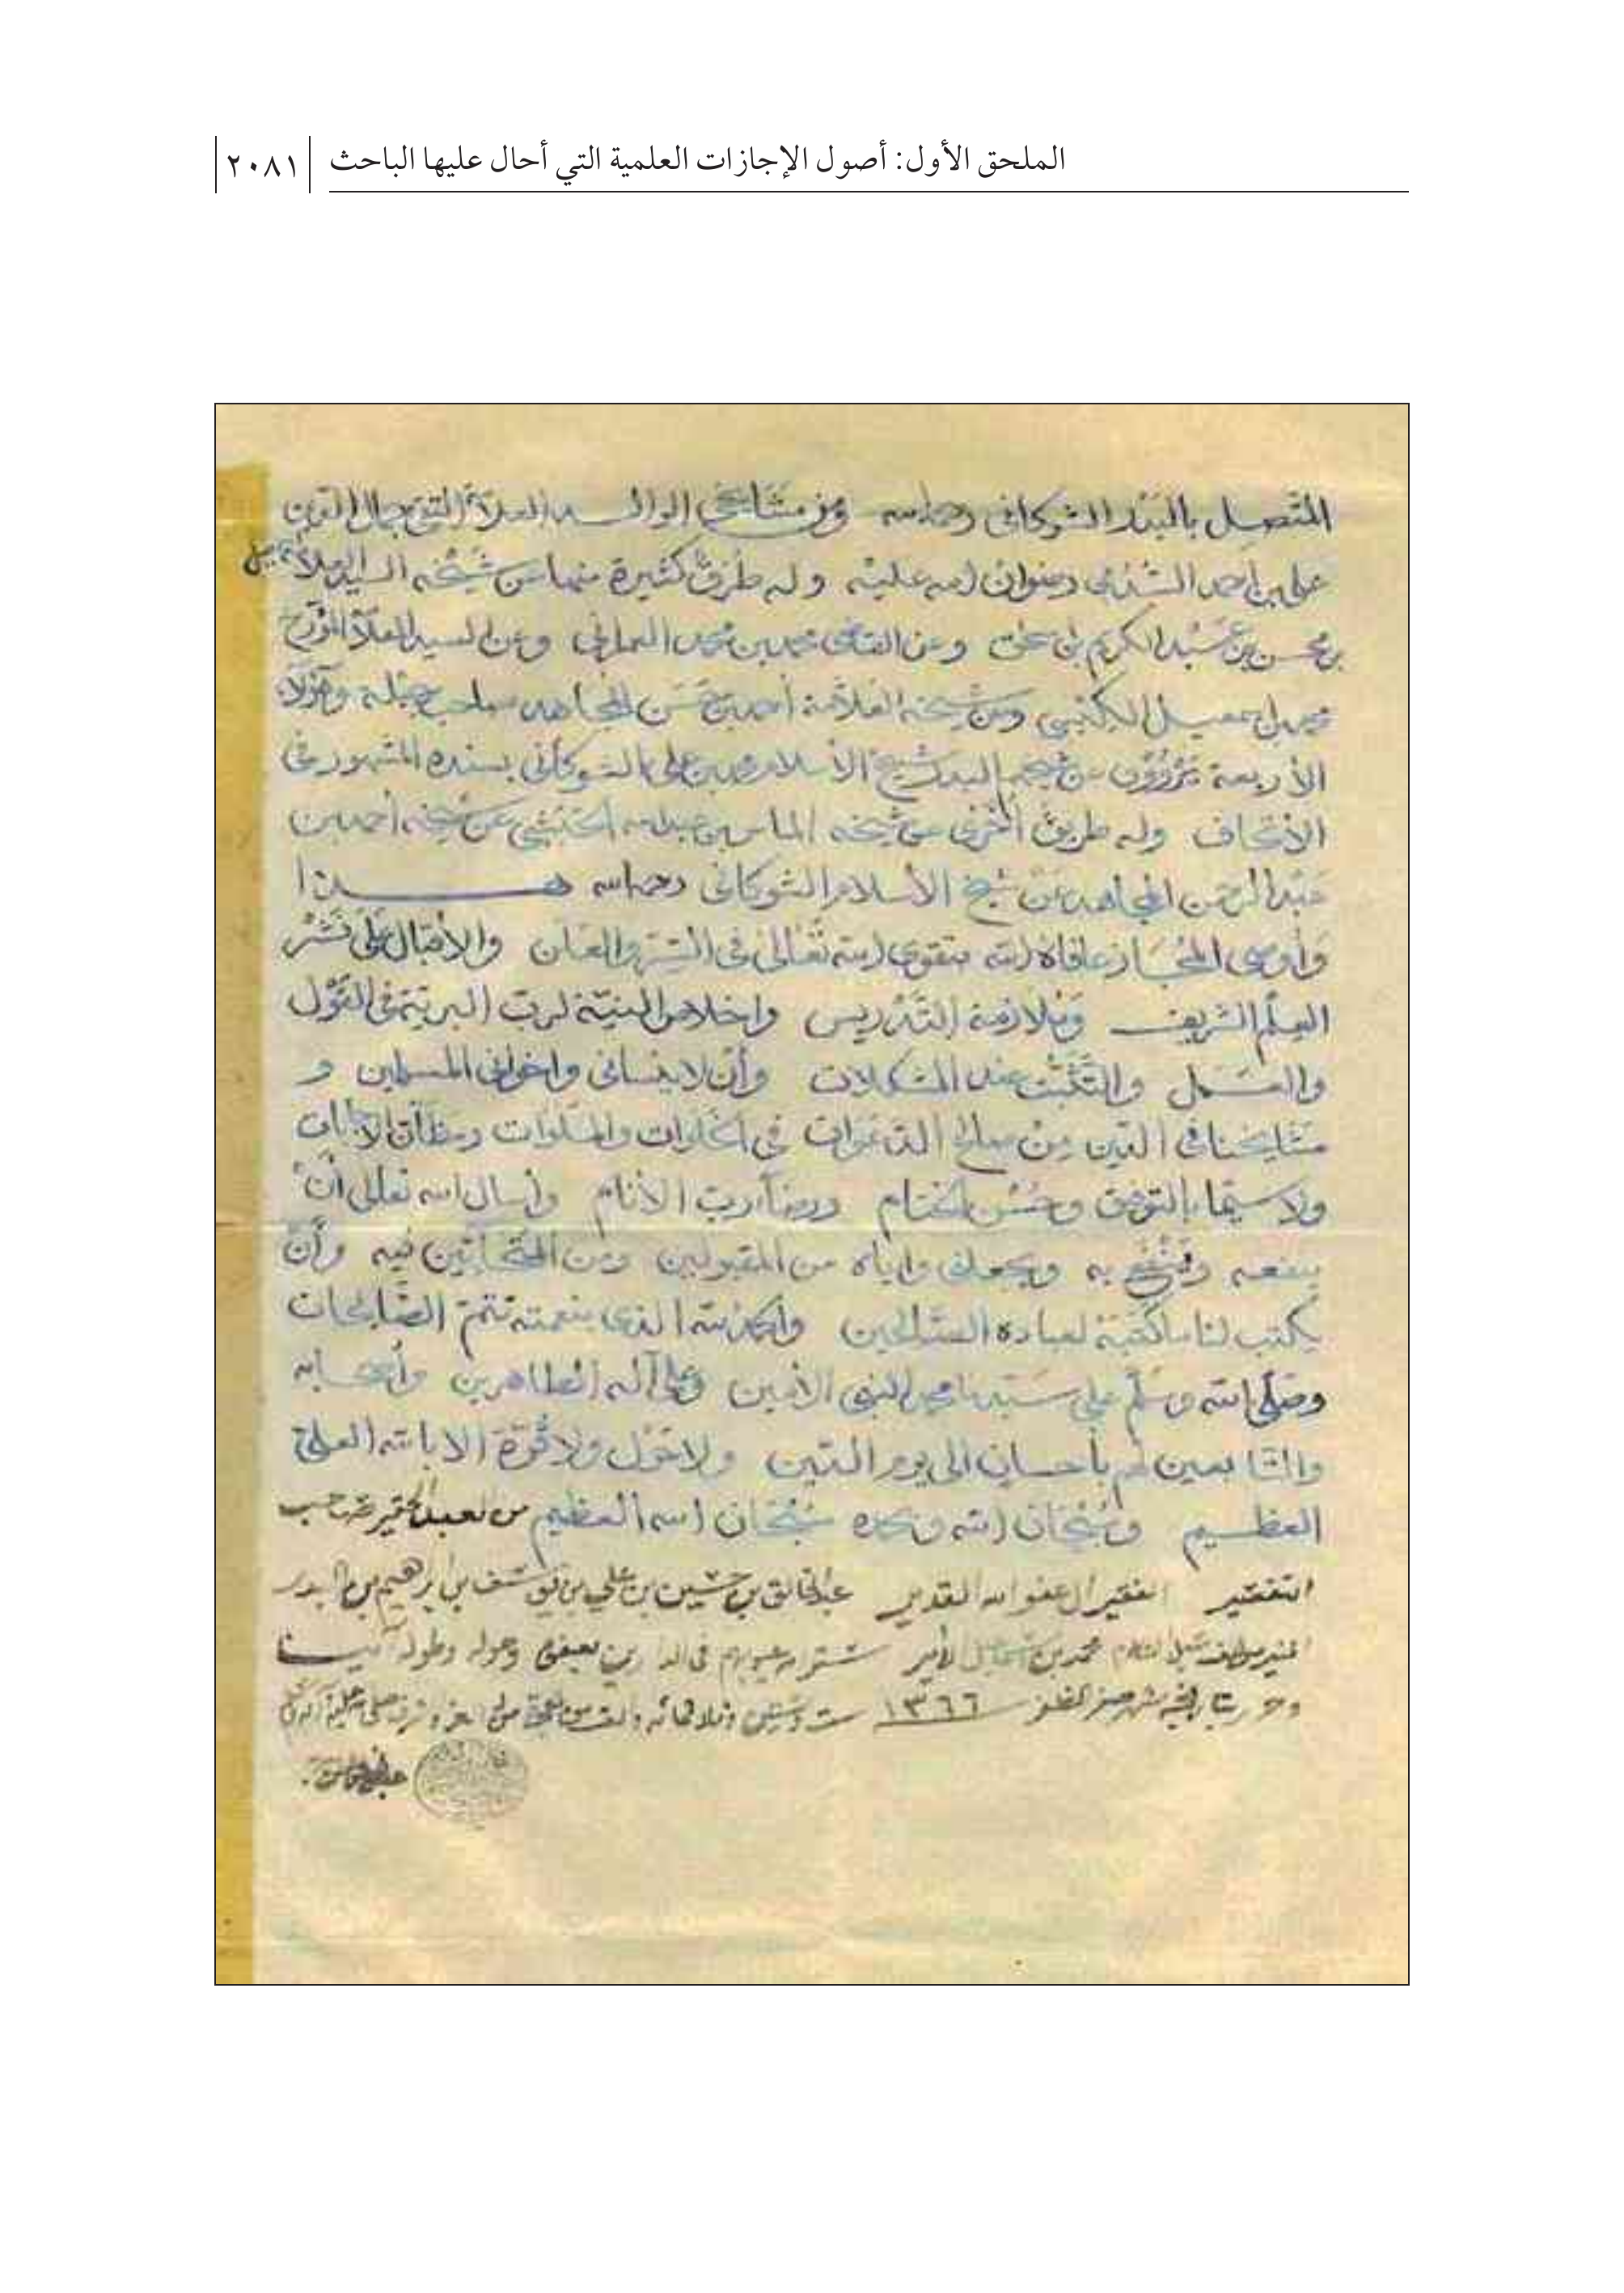 الملحق الأول: أصول الإجازات العلمية التي أحال عليها الباحث
٢٠٨١
المتصل بالبدر الشوكاني رحمه الله ومن مشايخي الوالد العلامة التقي جمال الدين
علي بن أحمد السدمي رضوان الله عليه وله طرق كثيرة منها عن شيخه السيد العلامة
بن محسن بن عبد الكريم بن إسحق وعن القاضي محمد بن محمد العمراني وعن السيد العلامة المؤرخ
محمد بن إسمعيل الكبسي وعن شيخه العلامة أحمد بن حسن المجاهد صاحب جبلة وهؤلاء
الأربعة يروون عن شيخهم البدر شيخ الأسلام محمد بن علي الشوكاني بسنده المشهور في
الأتحاف وله طريق أخرى عن شيخه الماس بن عبد الله الحبشي عن شيخه أحمد بن
عبد الرحمن المجاهد عن شيخ الأسلام الشوكاني رحمه الله هذا
وأوصي المجاز عافاه الله بتقوى الله تعالى في السر والعلن والأقبال على نشر
العلم الشريف وملازمة التدريس وإخلاص النية لرب البرية في القول
والعمل والتثبت عند المشكلات وأن لا ينساني وإخواني المسلمين و
مشايخنا في الدين من صالح الدعوات في الخلوات والصلوات ومظان الإجابات
ولا سيما بالتوفيق وحسن الختام ورضاء رب الأنام وأسال الله تعالى أن
ينفعه وينفع به ويجعلني وإياه من المقبولين ومن المتحابين فيه وأن
يكتب لنا ما كتبه لعباده الصالحين والحمد لله الذي بنعمته تتم الصالحات
وصلى الله وسلم على سيدنا محمد النبي الأمين وعلى آله الطاهرين وأصحابه
والتابعين لهم بأحسان إلى يوم الدين ولا حول ولا قوة الا بالله العلي
العظيم وسبحان الله وبحمده سبحان الله العظيم من العبد الحقير صاحب
التقصير الفقير إلى عفو الله القدير عبد الخالق بن حسين بن علي بن يوسف بن إبرهيم بن البدر
المنير مؤلف سبل السلام محمد بن إسماعيل الأمير ستر الله عيوبهم في الدارين بعفوه وحوله وطوله آمينا
وحرر بتاريخه شهر صفر المظفر ١٣٦٦ ست وستين وثلاثمائه والف من هجرة من له العز والشرف صلى الله عليه وآله